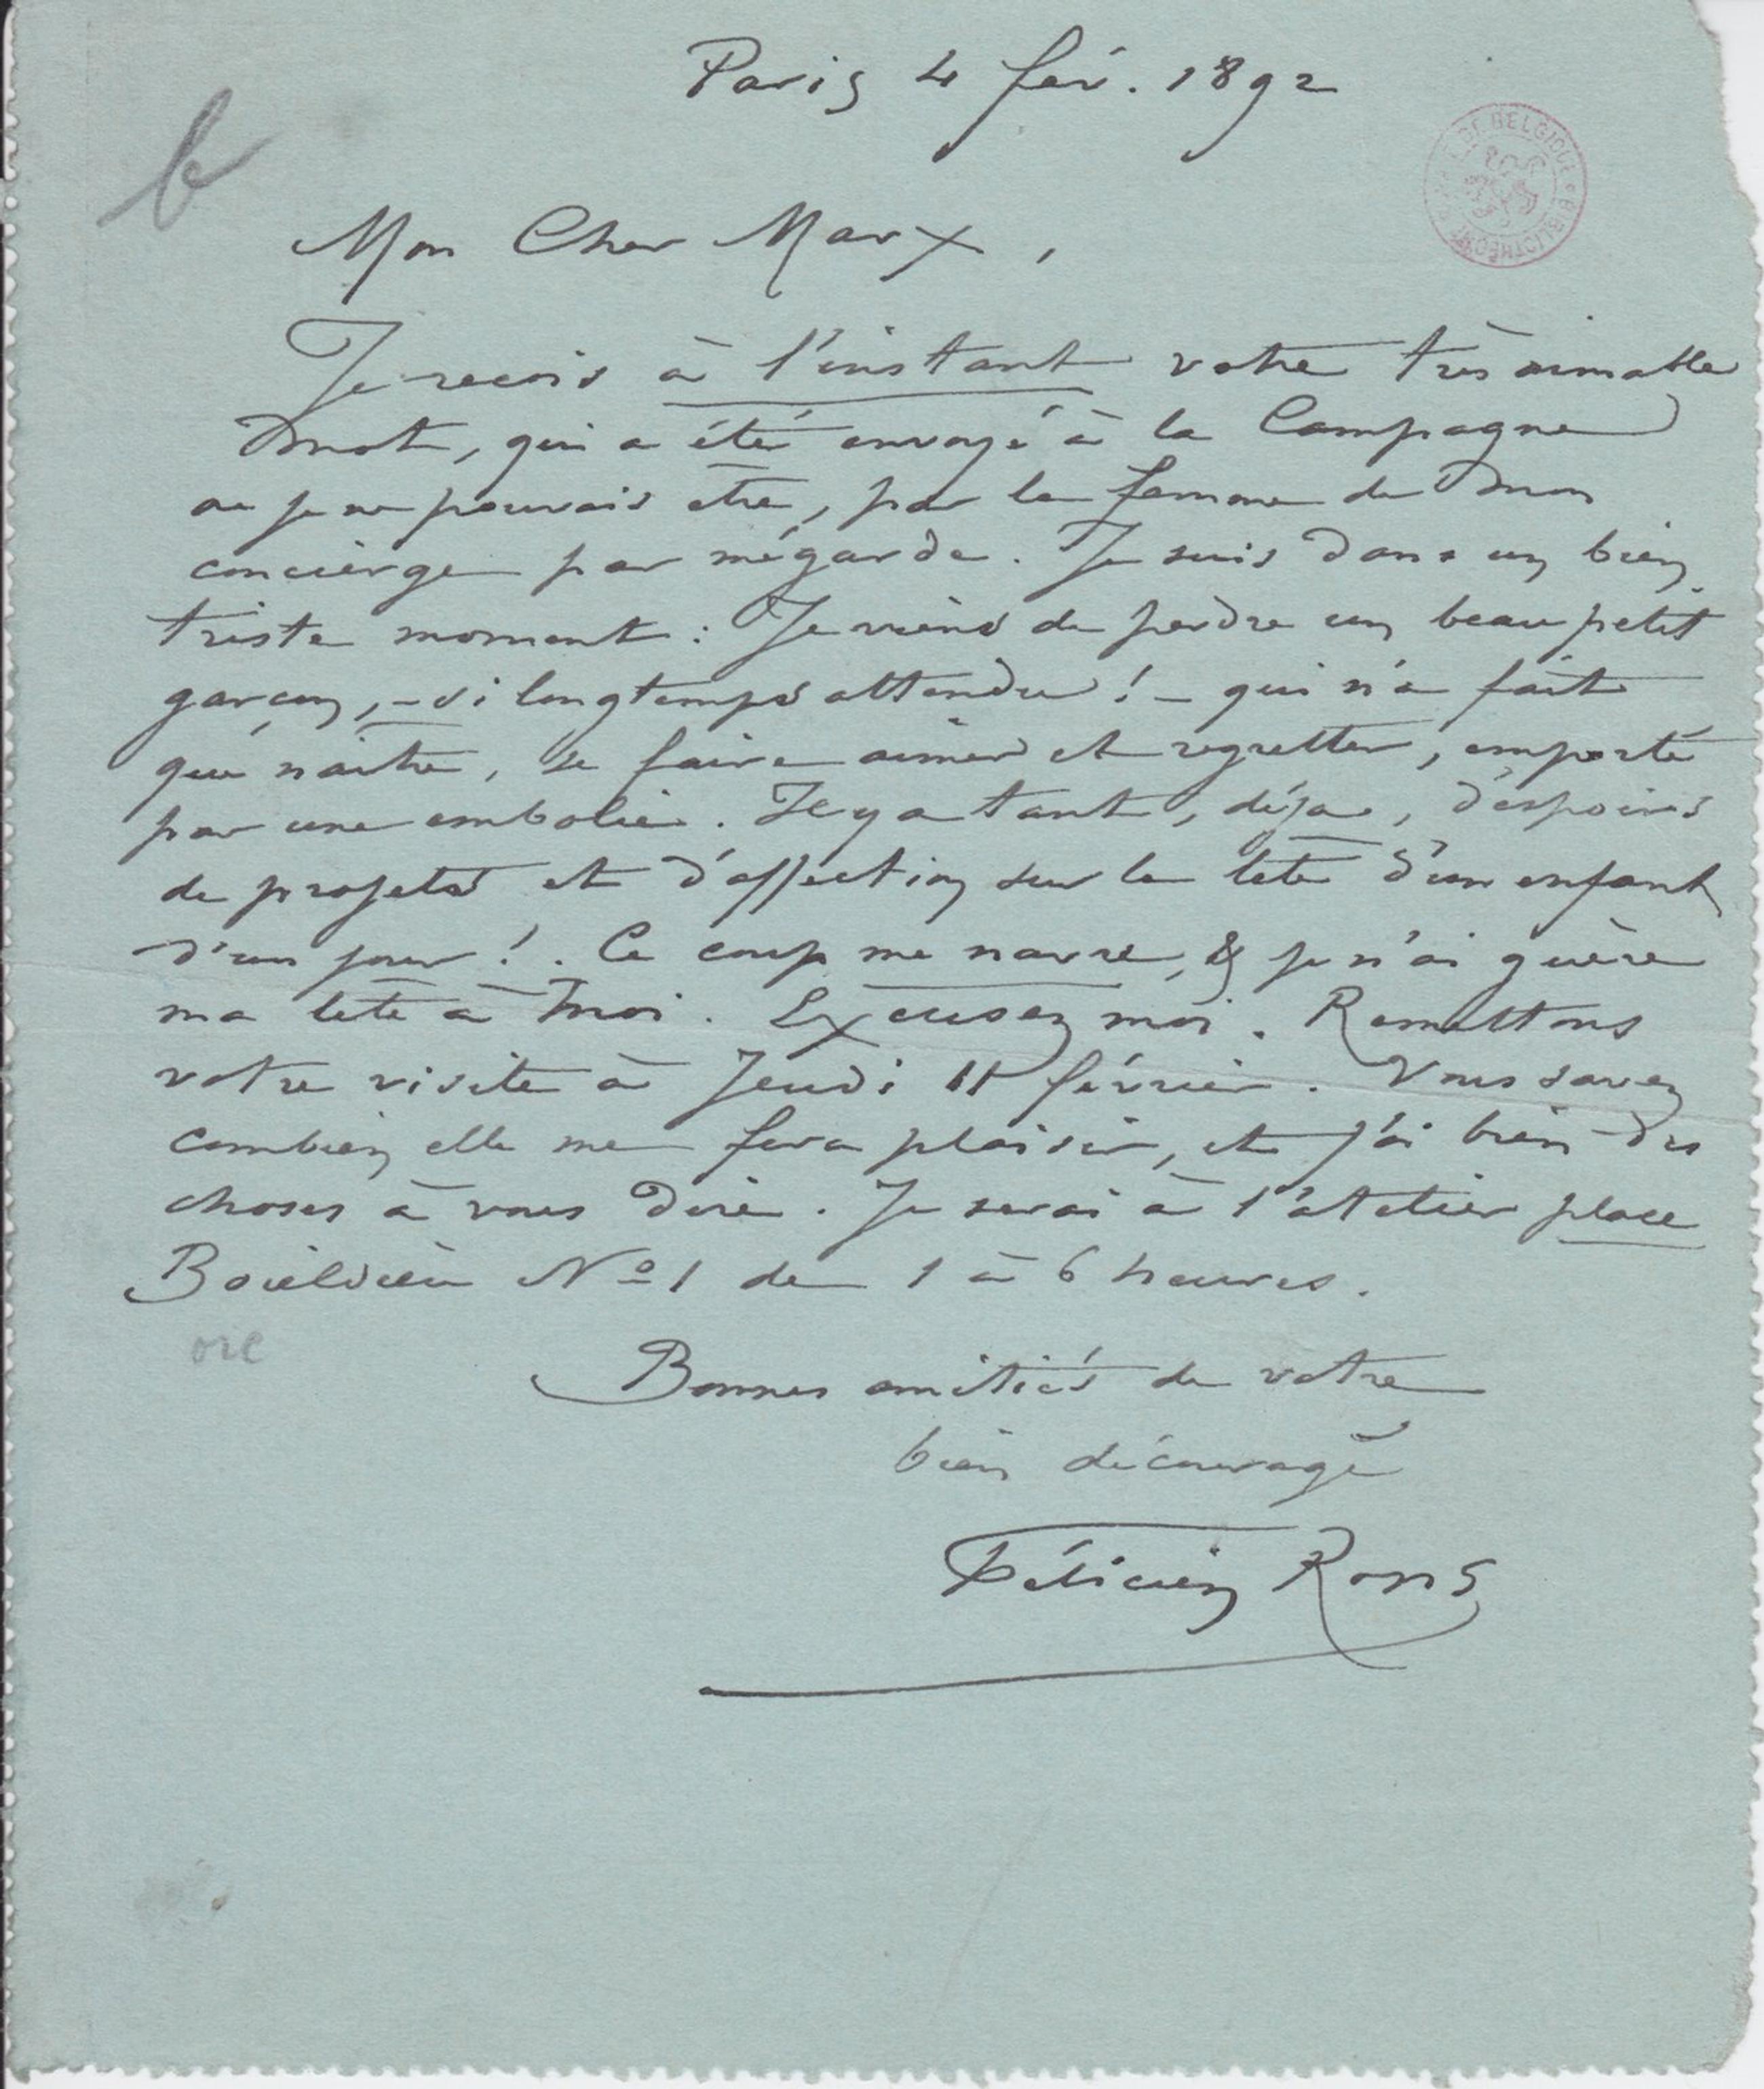 Paris 4 fév. 1892
b
Mon Cher Marx,
Je reçois à l'instant votre très aimable
mot, qui a été envoyé à la Campagne
où je ne pouvais être, par la femme de mon
concierge par mégarde. Je suis dans un bien
triste moment : Je viens de perdre un beau petit
garçon, – si longtemps attendu ! – qui n'a fait
que naître, se faire aimer et regretter, emporté
par une embolie. Il y a tant, déja, d'espoirs
de projets et d'affection sur la tête d'un enfant
d'un jour !. Ce coup me navre, & je n'ai guère
ma tête à moi. Excusez moi. Remettons
votre visite à Jeudi 11 février. Vous savez
combien elle me fera plaisir, et j'ai bien des
choses à vous dire. Je serai à l'atelier place
Boieldieu No 1 de 1 à 6 heures.
oie
Bonnes amitiés de votre
bien découragé
Félicien Rops
DE BELGIQUE • BIBLIOTHÈQUE